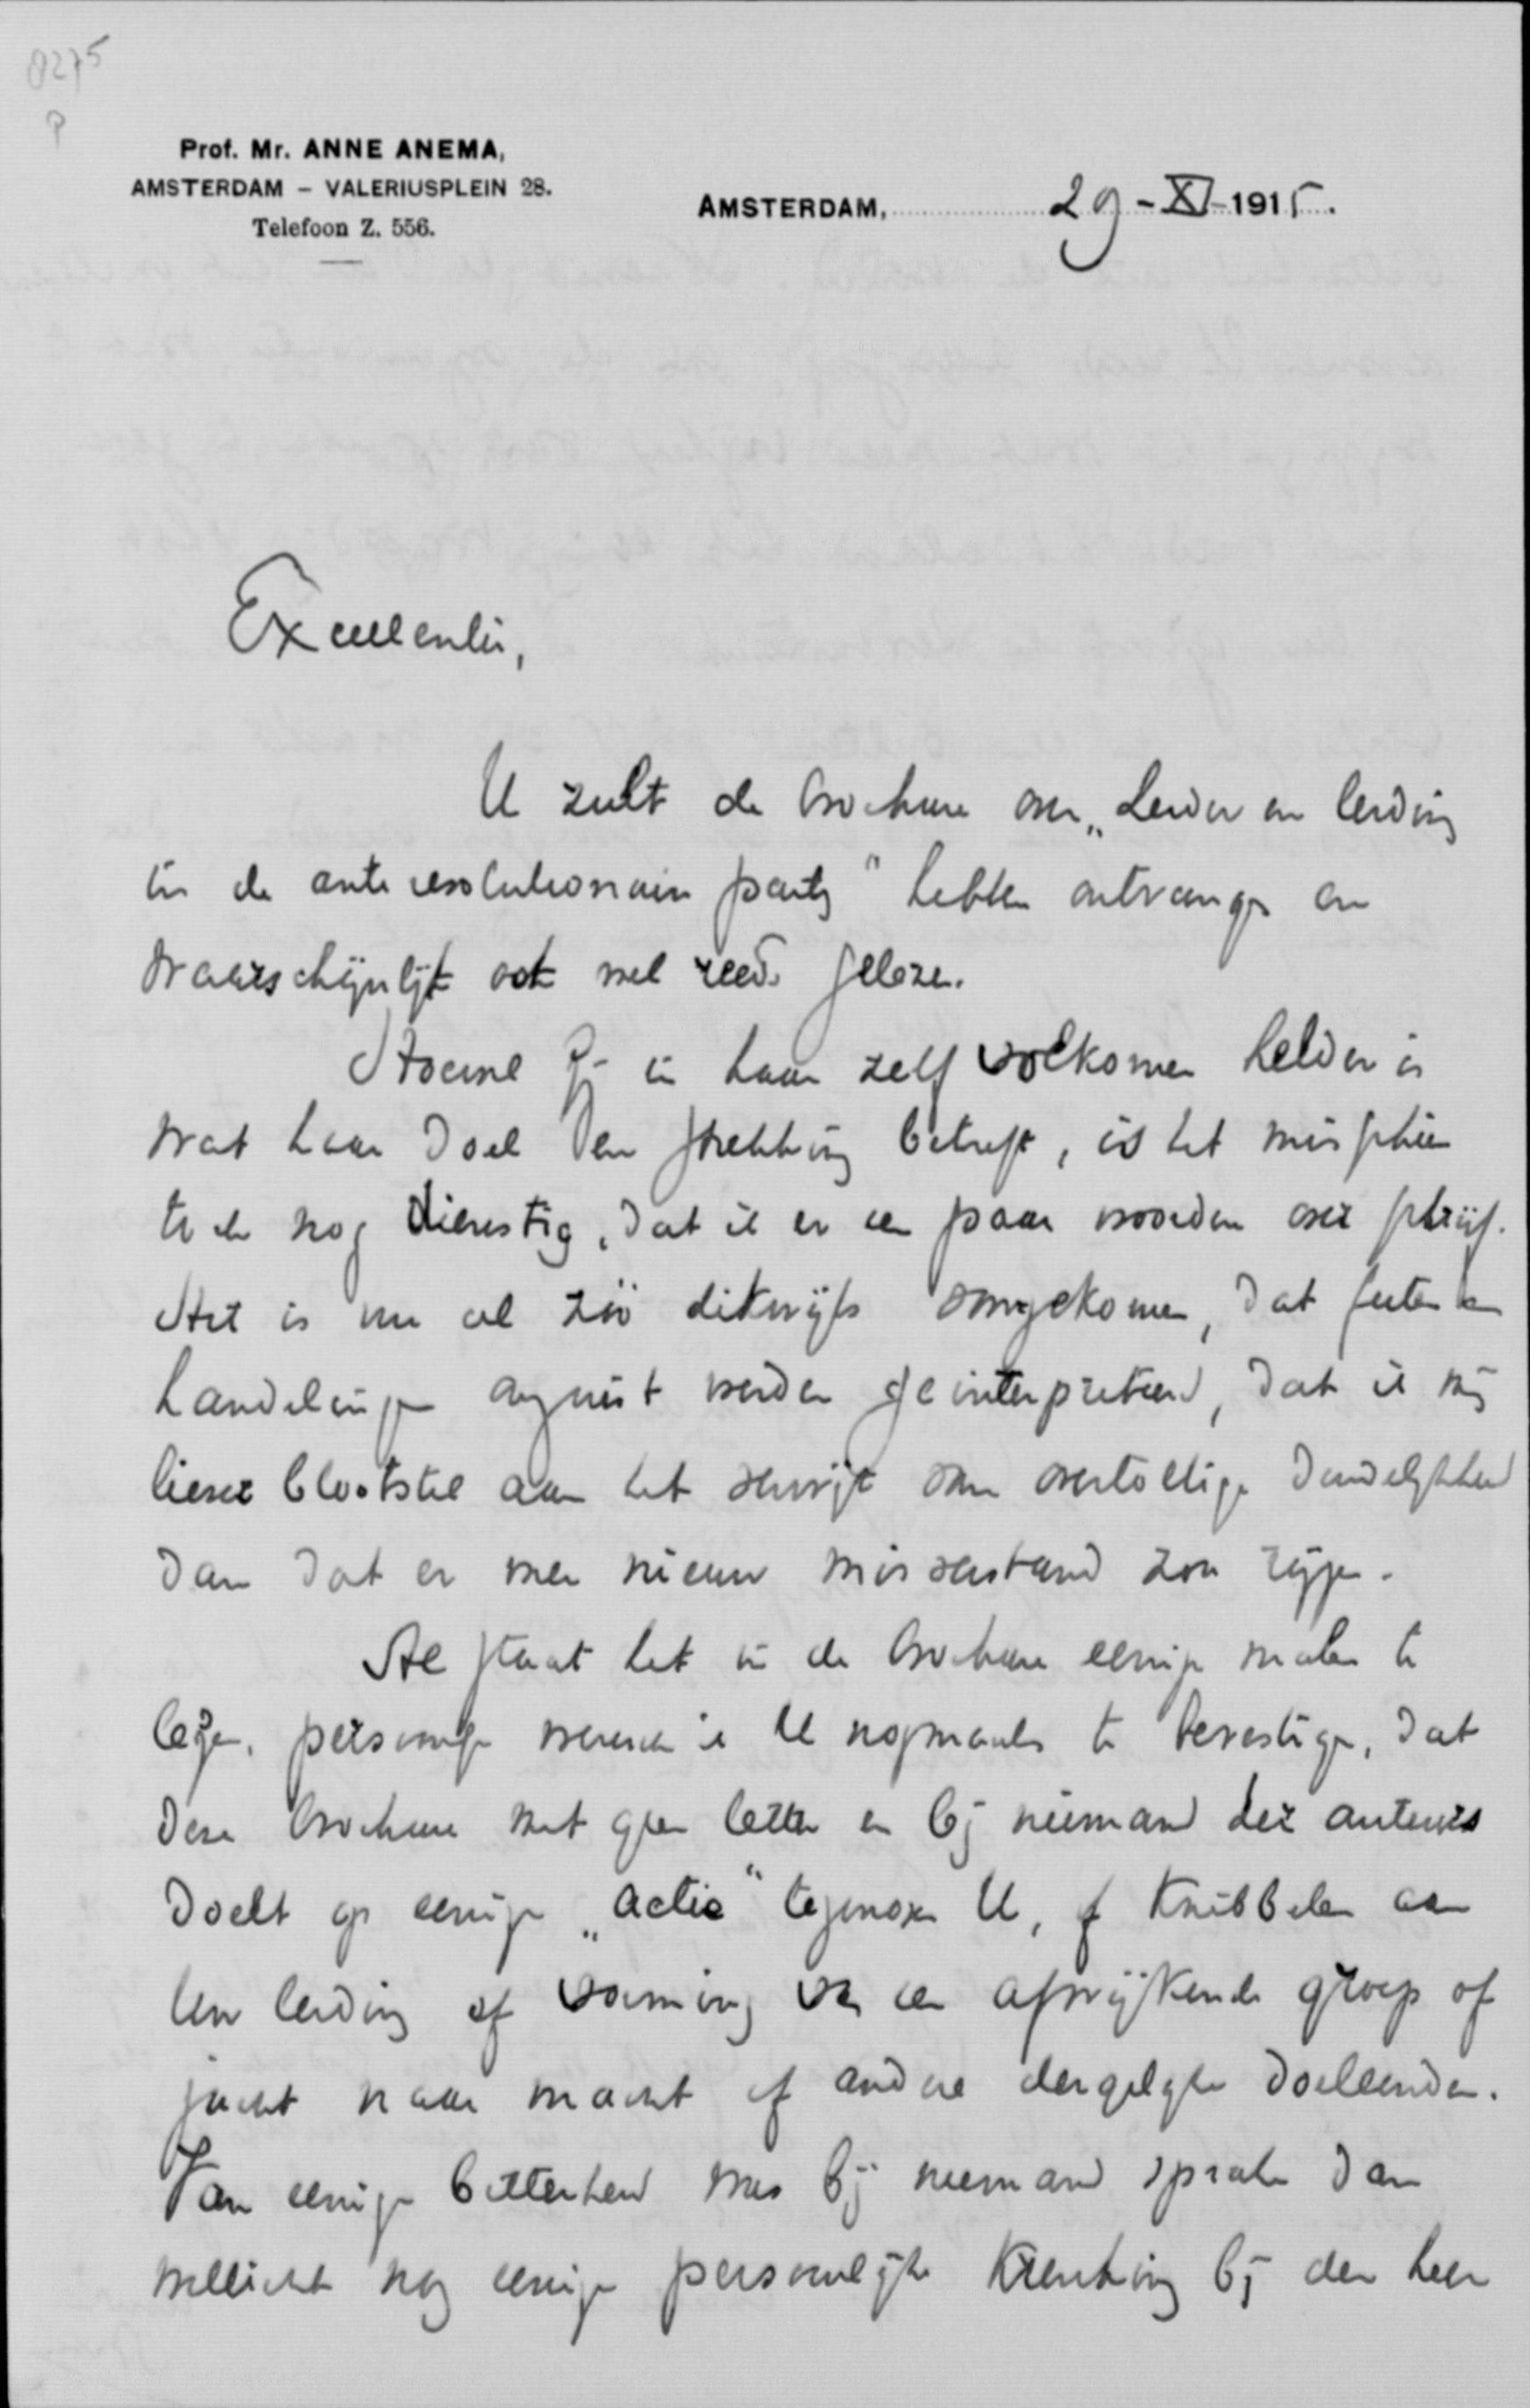 0275
P
Prof. Mr. ANNE ANEMA,
AMSTERDAM – VALERIUSPLEIN 28.
Telefoon Z. 556.
AMSTERDAM, 29-XI-1915.
Excellentie,
U zult de brochure over „Leider en leiding
in de antirevolutionaire partij" hebben ontvangen en
waarschijnlijk ook wel reeds gelezen.
Hoewel zij in haar zelf volkomen helder is
wat haar doel en strekking betreft, is het misschien
toch nog dienstig, dat ik er een paar woorden over schrijf.
Het is nu al zóó dikwijls voorgekomen, dat feiten en
handelingen onjuist werden geïnterpreteerd, dat ik mij
liever blootstel aan het verwijt van overtollige duidelijkheid
dan dat er weer nieuw misverstand zou rijzen.
Al staat het in de brochure eenige malen te
lezen, persoonlijk wensch ik U nogmaals te bevestigen, dat
deze brochure met geen letter en bij niemand der auteurs
doelt op eenige „actie" tegenover U, of knibbelen aan
Uw leiding of vorming van een afwijkende groep of
jacht naar macht of andere dergelijke doeleinden.
Van eenige bitterheid was bij niemand sprake dan
wellicht nog eenige persoonlijke krenking bij den heer